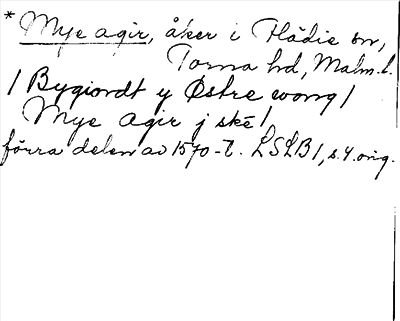 * Mye agir, åker i Flädie sn,
Torna hd, Malm. l.
/ Bygiordt y Østre wong /
Mye Agir j ske /
förra delen av 1570-t. LSLB 1, s. 4. orig.